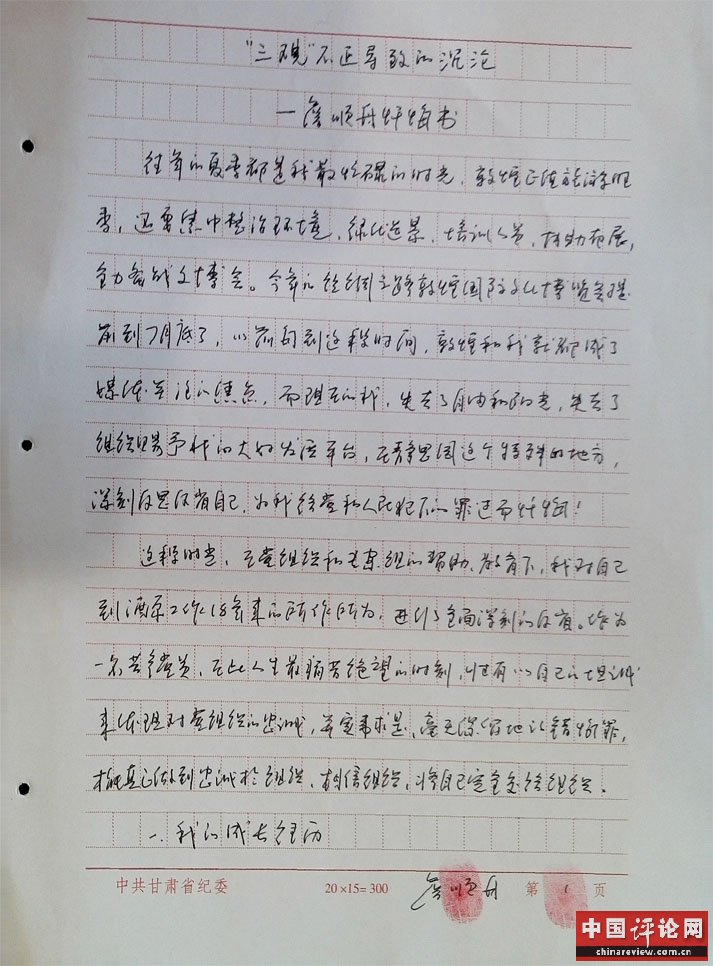 “三观”不正导致的沉沦
—詹顺舟忏悔书
往年的夏季都是我最忙碌的时光,敦煌正值旅游旺
季,还要集中整治环境,绿化造景,培训人员,布展,
全力备战文博会。今年的丝绸之路敦煌国际文化博览会提
前到7月底了,以前每到这段时间,敦煌和我就都成了
媒体关注的焦点,而现在的我,失去了自由和阳光,失去了
组织赐予我的大好发展平台,在静思园这个特殊的地方,
深刻反思反省自己,为我给党和人民犯下的罪过而忏悔!
这段时光,在党组织和专案组的帮助、教育下,我对自己
到酒泉工作18年来的所作所为,进行了全面深刻的反省。作为
一名共产党员,在此人生最痛苦绝望的时刻,只有以自己的坦诚
来体现对党组织的忠诚,实事求是、毫无保留地认错悔罪,
才能真正做到忠诚于组织、相信组织,将自己完全交给组织。
一、我的成长经历
中共甘肃省纪委 20×15=300 詹顺舟 第 1 页
中国评论网
chinareview.com.cn